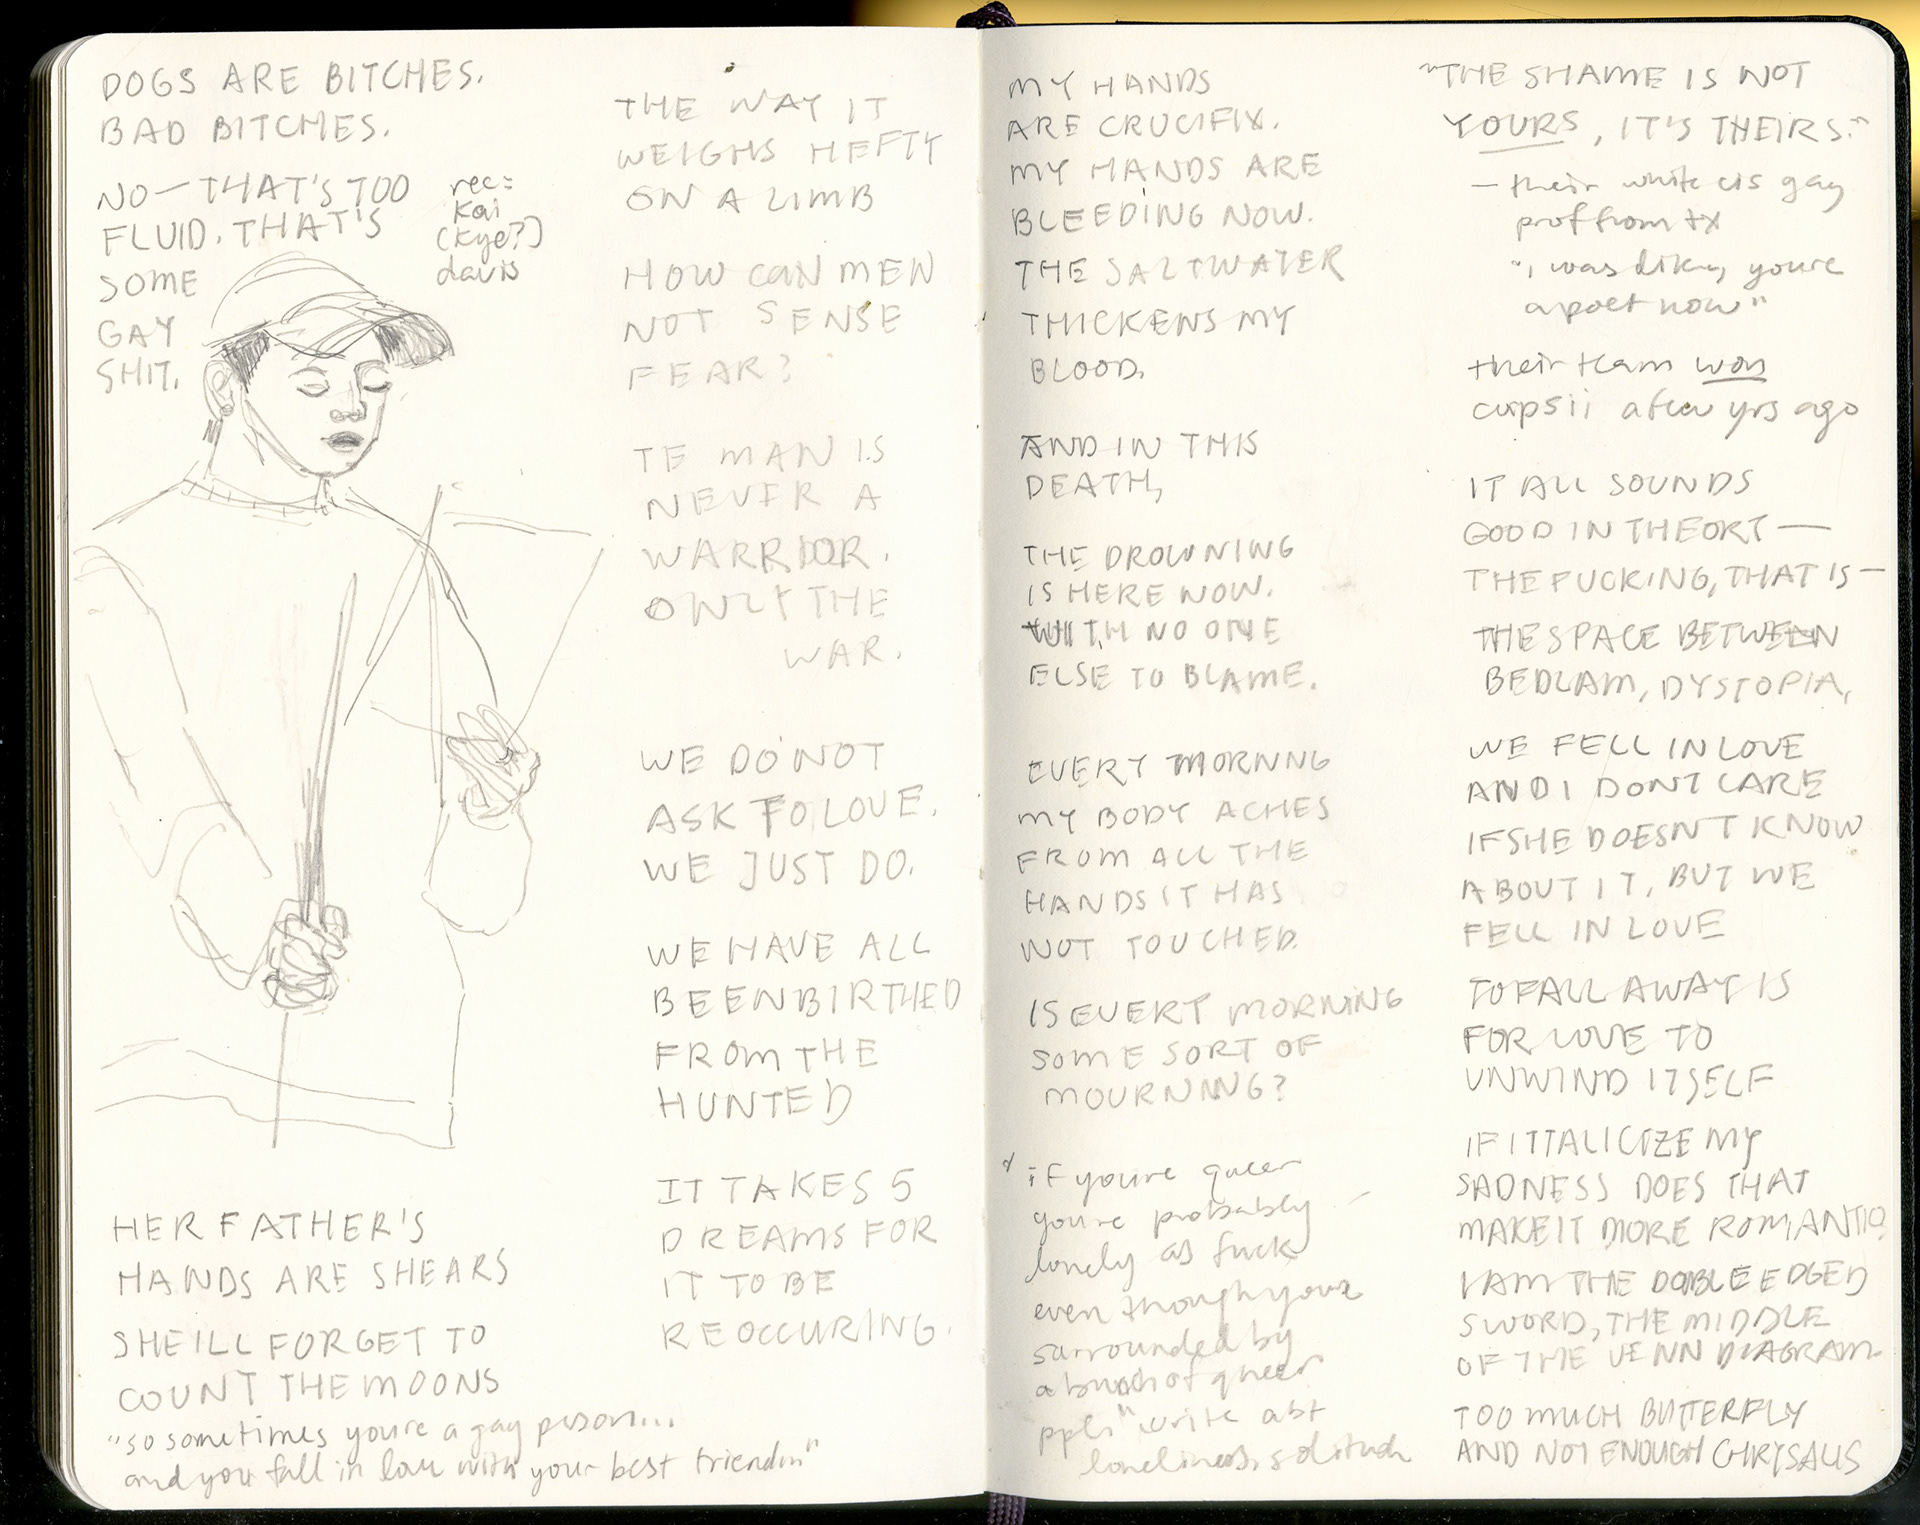 DOGS ARE BITCHES.
BAD BITCHES.
NO — THAT'S TOO
FLUID. THAT'S
SOME
GAY
SHIT.
rec:
Kai
(Kye?)
davis
HER FATHER'S
HANDS ARE SHEARS
SHEILL FORGET TO
COUNT THE MOONS
"so sometimes you're a gay person...
and you fall in love with your best friend"
THE WAY IT
WEIGHS HEFTY
ON A LIMB
HOW CAN MEN
NOT SENSE
FEAR?
TE MAN IS
NEVER A
WARRIOR.
ONLY THE
WAR.
WE DO NOT
ASK TO LOVE.
WE JUST DO.
WE HAVE ALL
BEEN BIRTHED
FROM THE
HUNTED
IT TAKES 5
DREAMS FOR
IT TO BE
REOCCURING.
MY HANDS
ARE CRUCIFIX.
MY HANDS ARE
BLEEDING NOW.
THE SALTWATER
THICKENS MY
BLOOD.
AND IN THIS
DEATH,
THE DROWNING
IS HERE NOW.
WITH NO ONE
ELSE TO BLAME.
EVERY MORNNG
MY BODY ACHES
FROM ALL THE
HANDS IT HAS
NOT TOUCHED.
IS EVERY MORNING
SOME SORT OF
MOURNING?
if you're queer
you're probably
lonely as fuck
even though you're
surrounded by
a bunch of queer
ppl" write abt
loneliness, solitude
"THE SHAME IS NOT
YOURS, IT'S THEIRS."
— their white cis gay
prof from tx
"i was like, you're
a poet now"
their team won
cupsii a few yrs ago
IT ALL SOUNDS
GOOD IN THEORY —
THE FUCKING, THAT IS —
THE SPACE BETWEEN
BEDLAM, DYSTOPIA,
WE FELL IN LOVE
AND I DON'T CARE
IF SHE DOESN'T KNOW
ABOUT IT, BUT WE
FELL IN LOVE
TO FALL AWAY IS
FOR LOVE TO
UNWIND ITSELF
IF I ITALICIZE MY
SADNESS DOES THAT
MAKE IT MORE ROMANTIC?
I AM THE DOUBLE EDGED
SWORD, THE MIDDLE
OF THE VENN DIAGRAM
TOO MUCH BUTTERFLY
AND NOT ENOUGH CHRYSALIS